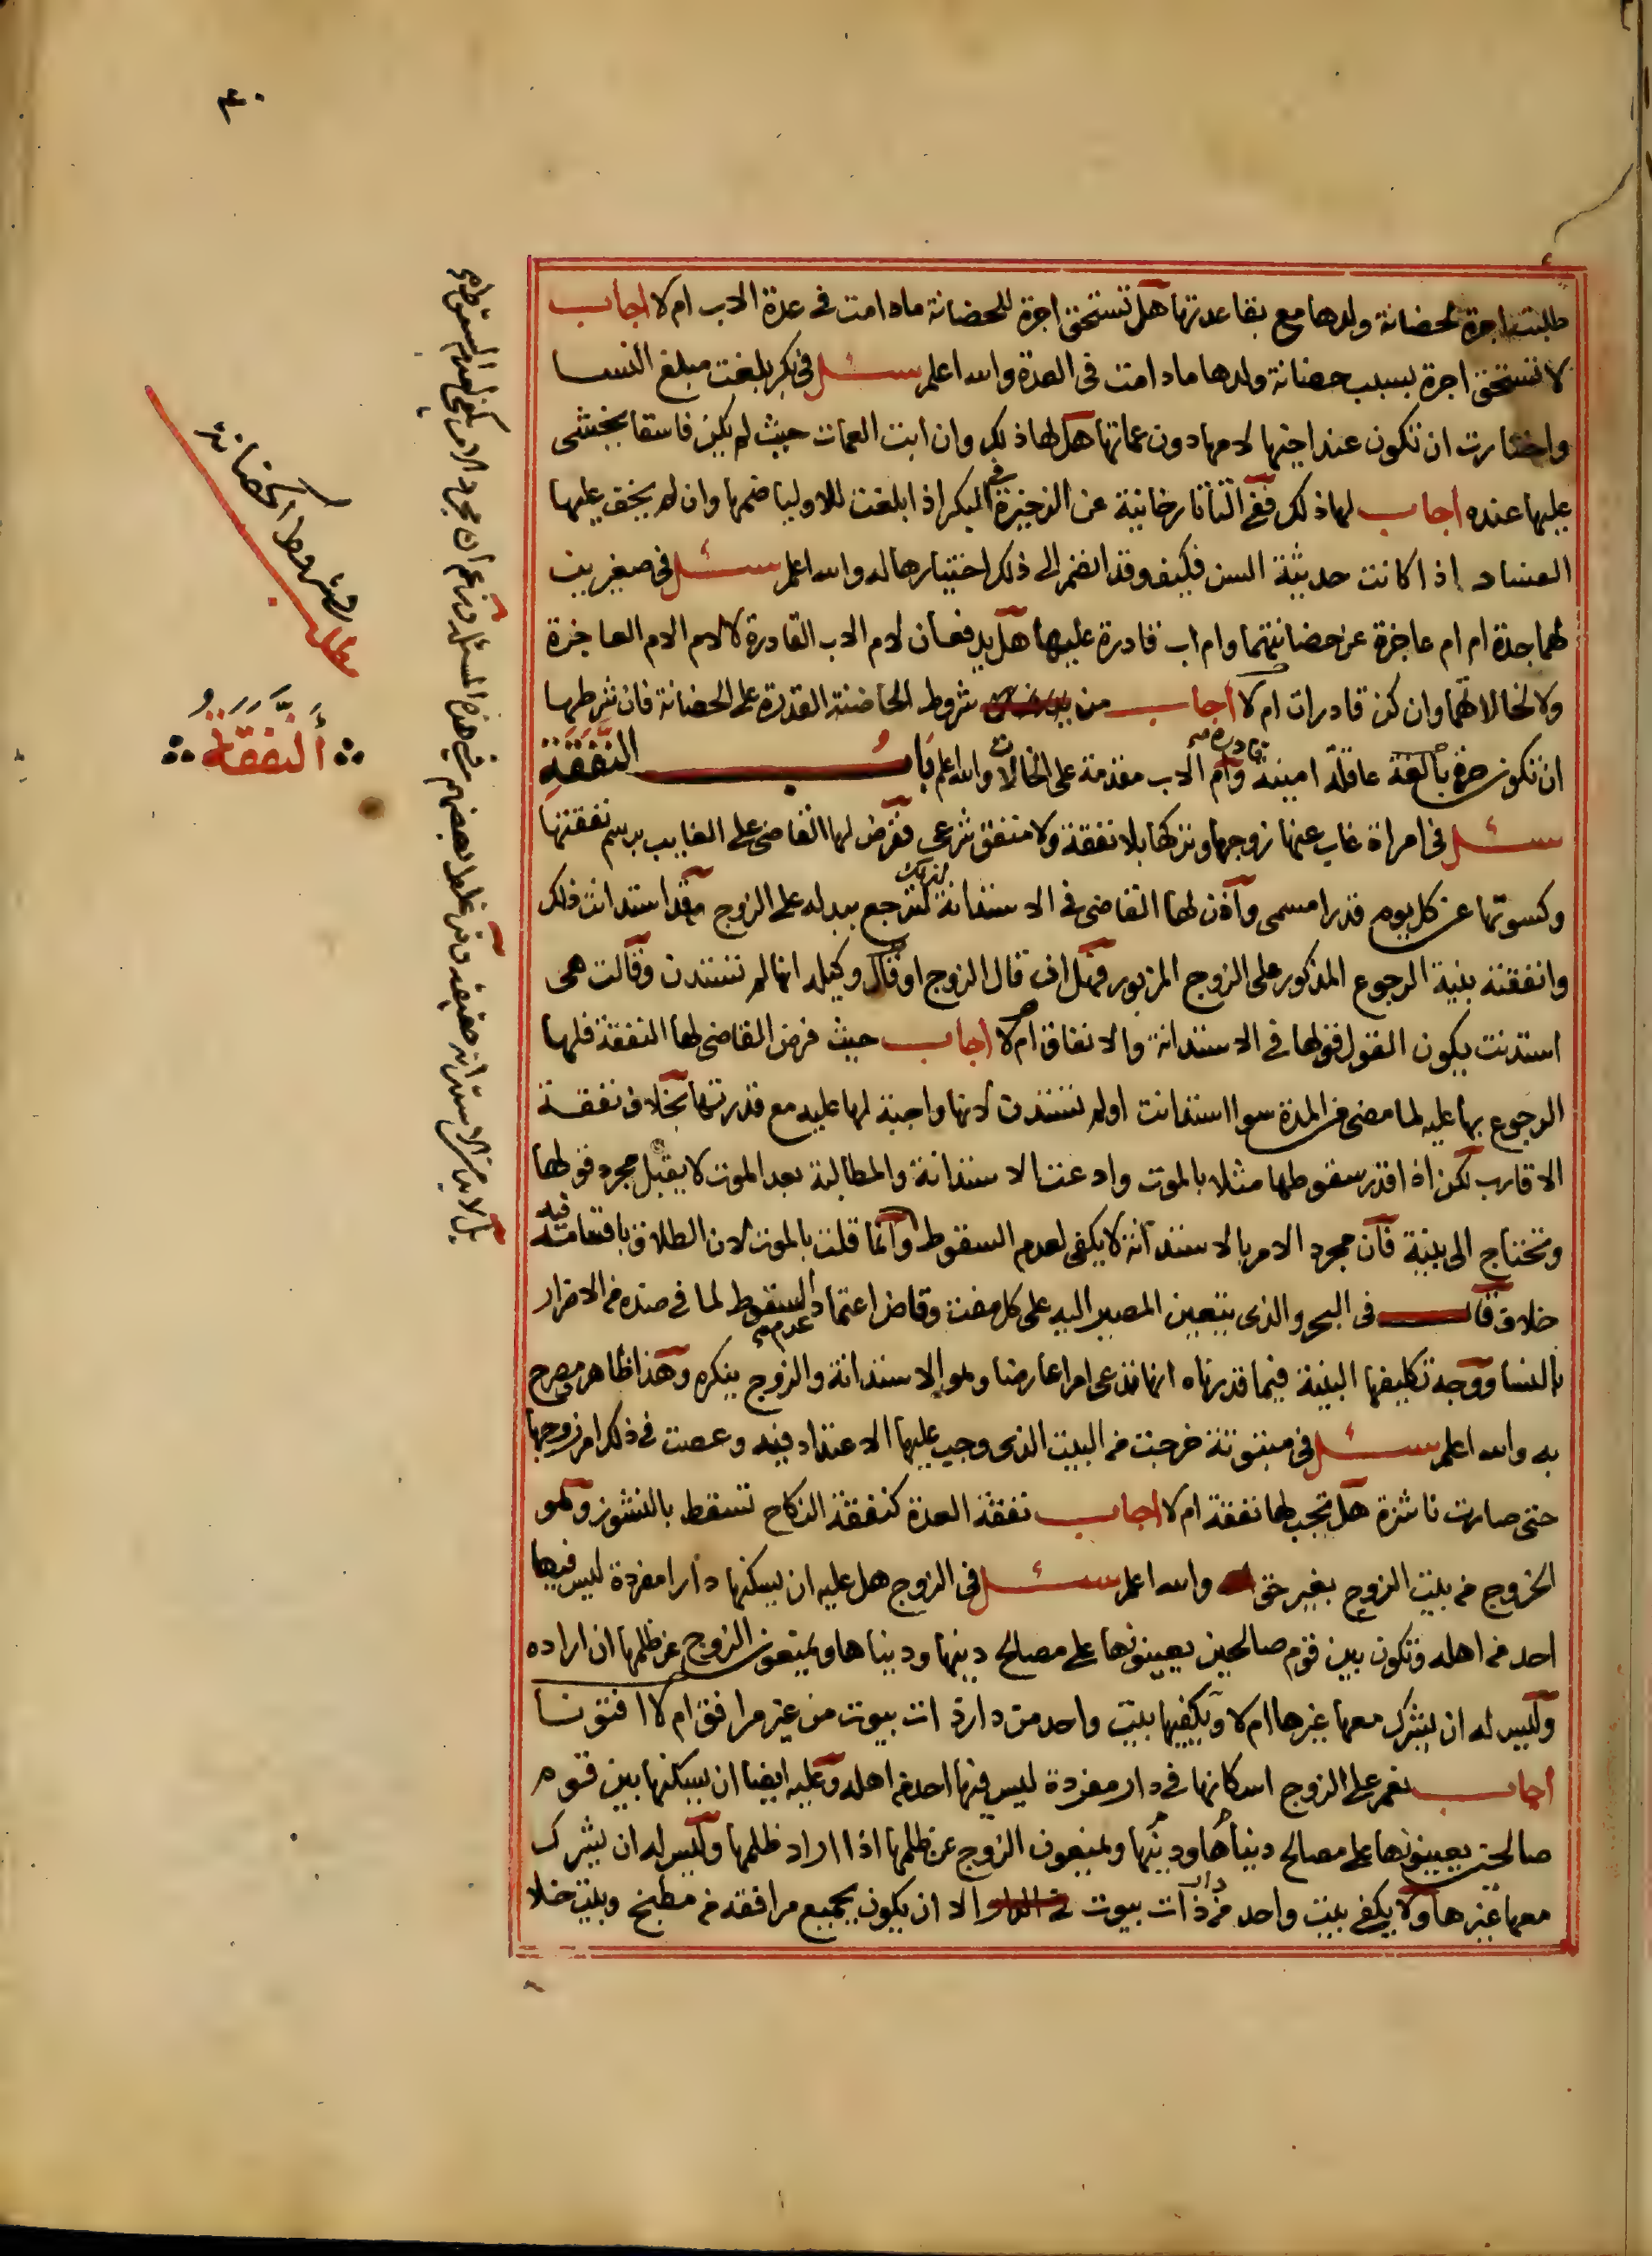 ٤٠
طلبت اجرة لحضانة ولدها مع بقا عدتها هل تستحق اجرة للحضانة ما دامت في عدة الاب ام لا اجاب
لا تستحق اجرة بسبب حضانة ولدها ما دامت في العدة والله اعلم سئل في بكر بلغت مبلغ النسا
واختارت ان تكون عند اخيها لامها دون عماتها هل لها ذلك وان ابت العمات حيث لم يكن فاسقا يخشى
عليها عنده اجاب لها ذلك ففي التاتارخانية عن الذخيرة في البكر اذا بلغت للاوليا ضمها وان لم يخف عليها
الفساد اذا كانت حديثة السن فكيف وقد انضم الى ذلك اختيارها له والله اعلم سئل في صغيرين
لهما جدة ام ام عاجزة عن حضانتهما وام اب قادرة عليها هل يدفعان لام الاب القادرة لا لام الام العاجزة
ولا لخالاتهما وان كن قادرات ام لا اجاب من شروط الحاضنة القدرة على الحضانة فان شرطها
ان تكون حرة بالغة عاقلة امينة قادرة وام الاب مقدمة على الخالات والله اعلم باب النفقة
سئل في امراة غاب عنها زوجها وتركها بلا نفقة ولا منفق شرعي ففرض لها القاضي على الغايب برسم نفقتها
وكسوتها عن كل يوم قدرا مسمى وأذن لها القاضي في الاستدانة لترجع ببدله على الزوج فقد استدانت ذلك
وانفقته بنية الرجوع المذكور على الزوج المزبور فهل ان قال الزوج او قال وكيله انها لم تستدن وقالت هي
استدنت يكون القول قولها في الاستدانة والانفاق ام لا اجاب حيث فرض القاضي لها النفقة فلها
الرجوع بها عليه لما مضى من المدة سوا استدانت اولم تستدن لانها واجبة لها عليه مع قدرتها بخلاف نفقة
الاقارب لكن اذا قدر سقوطها مثلا بالموت وادعت الاستدانة والمطالبة بعد الموت لا يقبل مجرد قولها
وتحتاج الى بينة فان مجرد الامر بالاستدانة لا يكفي لعدم السقوط وانما قلت بالموت لان الطلاق باقسامه فيه
خلاف قال في البحر والذي يتعين المصير اليه على كل مفت وقاض اعتماد عدم السقوط لما في ضده من الاضرار
بالنسا ووجه تكليفها البينة فيما قدرناه انها تدعى امرا عارضا وهو الاستدانة والزوج ينكره وهذا ظاهر مصرح
به والله اعلم سئل في مبتوتة خرجت من البيت الذي وجب عليها الاعتداد فيه وعصت في ذلك امر زوجها
حتى صارت ناشزة هل تجب لها نفقة ام لا اجاب نفقة العدة كنفقة النكاح تسقط بالنشوز وهو
الخروج من بيت الزوج بغير حق والله اعلم سئل في الزوج هل عليه ان يسكنها دارا مفردة ليس فيها
احد من اهله وتكون بين قوم صالحين يعينونها على مصالح دينها ودنياها ويمنعون الزوج عن ظلمها ان اراده
وليس له ان يشرك معها غيرها ام لا ويكفيها بيت واحد من دار ذات بيوت من غير مرافق ام لا افتونا
اجاب نعم على الزوج اسكانها في دار مفردة ليس فيها احد من اهله وعليه ايضا ان يسكنها بين قوم
صالحين يعينونها على مصالح دنياها ودينها ويمنعون الزوج عن ظلمها اذا اراد ظلمها وليس له ان يشرك
معها غيرها ولا يكفي بيت واحد من دار ذات بيوت الا ان يكون بجميع مرافقه من مطبخ وبيت خلا
مطلب
وشروط الحضانة
النفقة